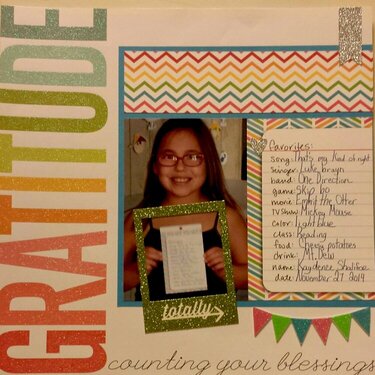 GRATITUDE
favorites:
song: That's my kind of night
singer: Luke bryan
band: One Direction
game: Skip bo
movie: Emmit the Otter
TV Show: Mickey Mouse
color: Light blue
class: Reading
food: Cheesy potatoes
drink: Mt. Dew
name:
date: November 27 2014
totally
counting your blessings